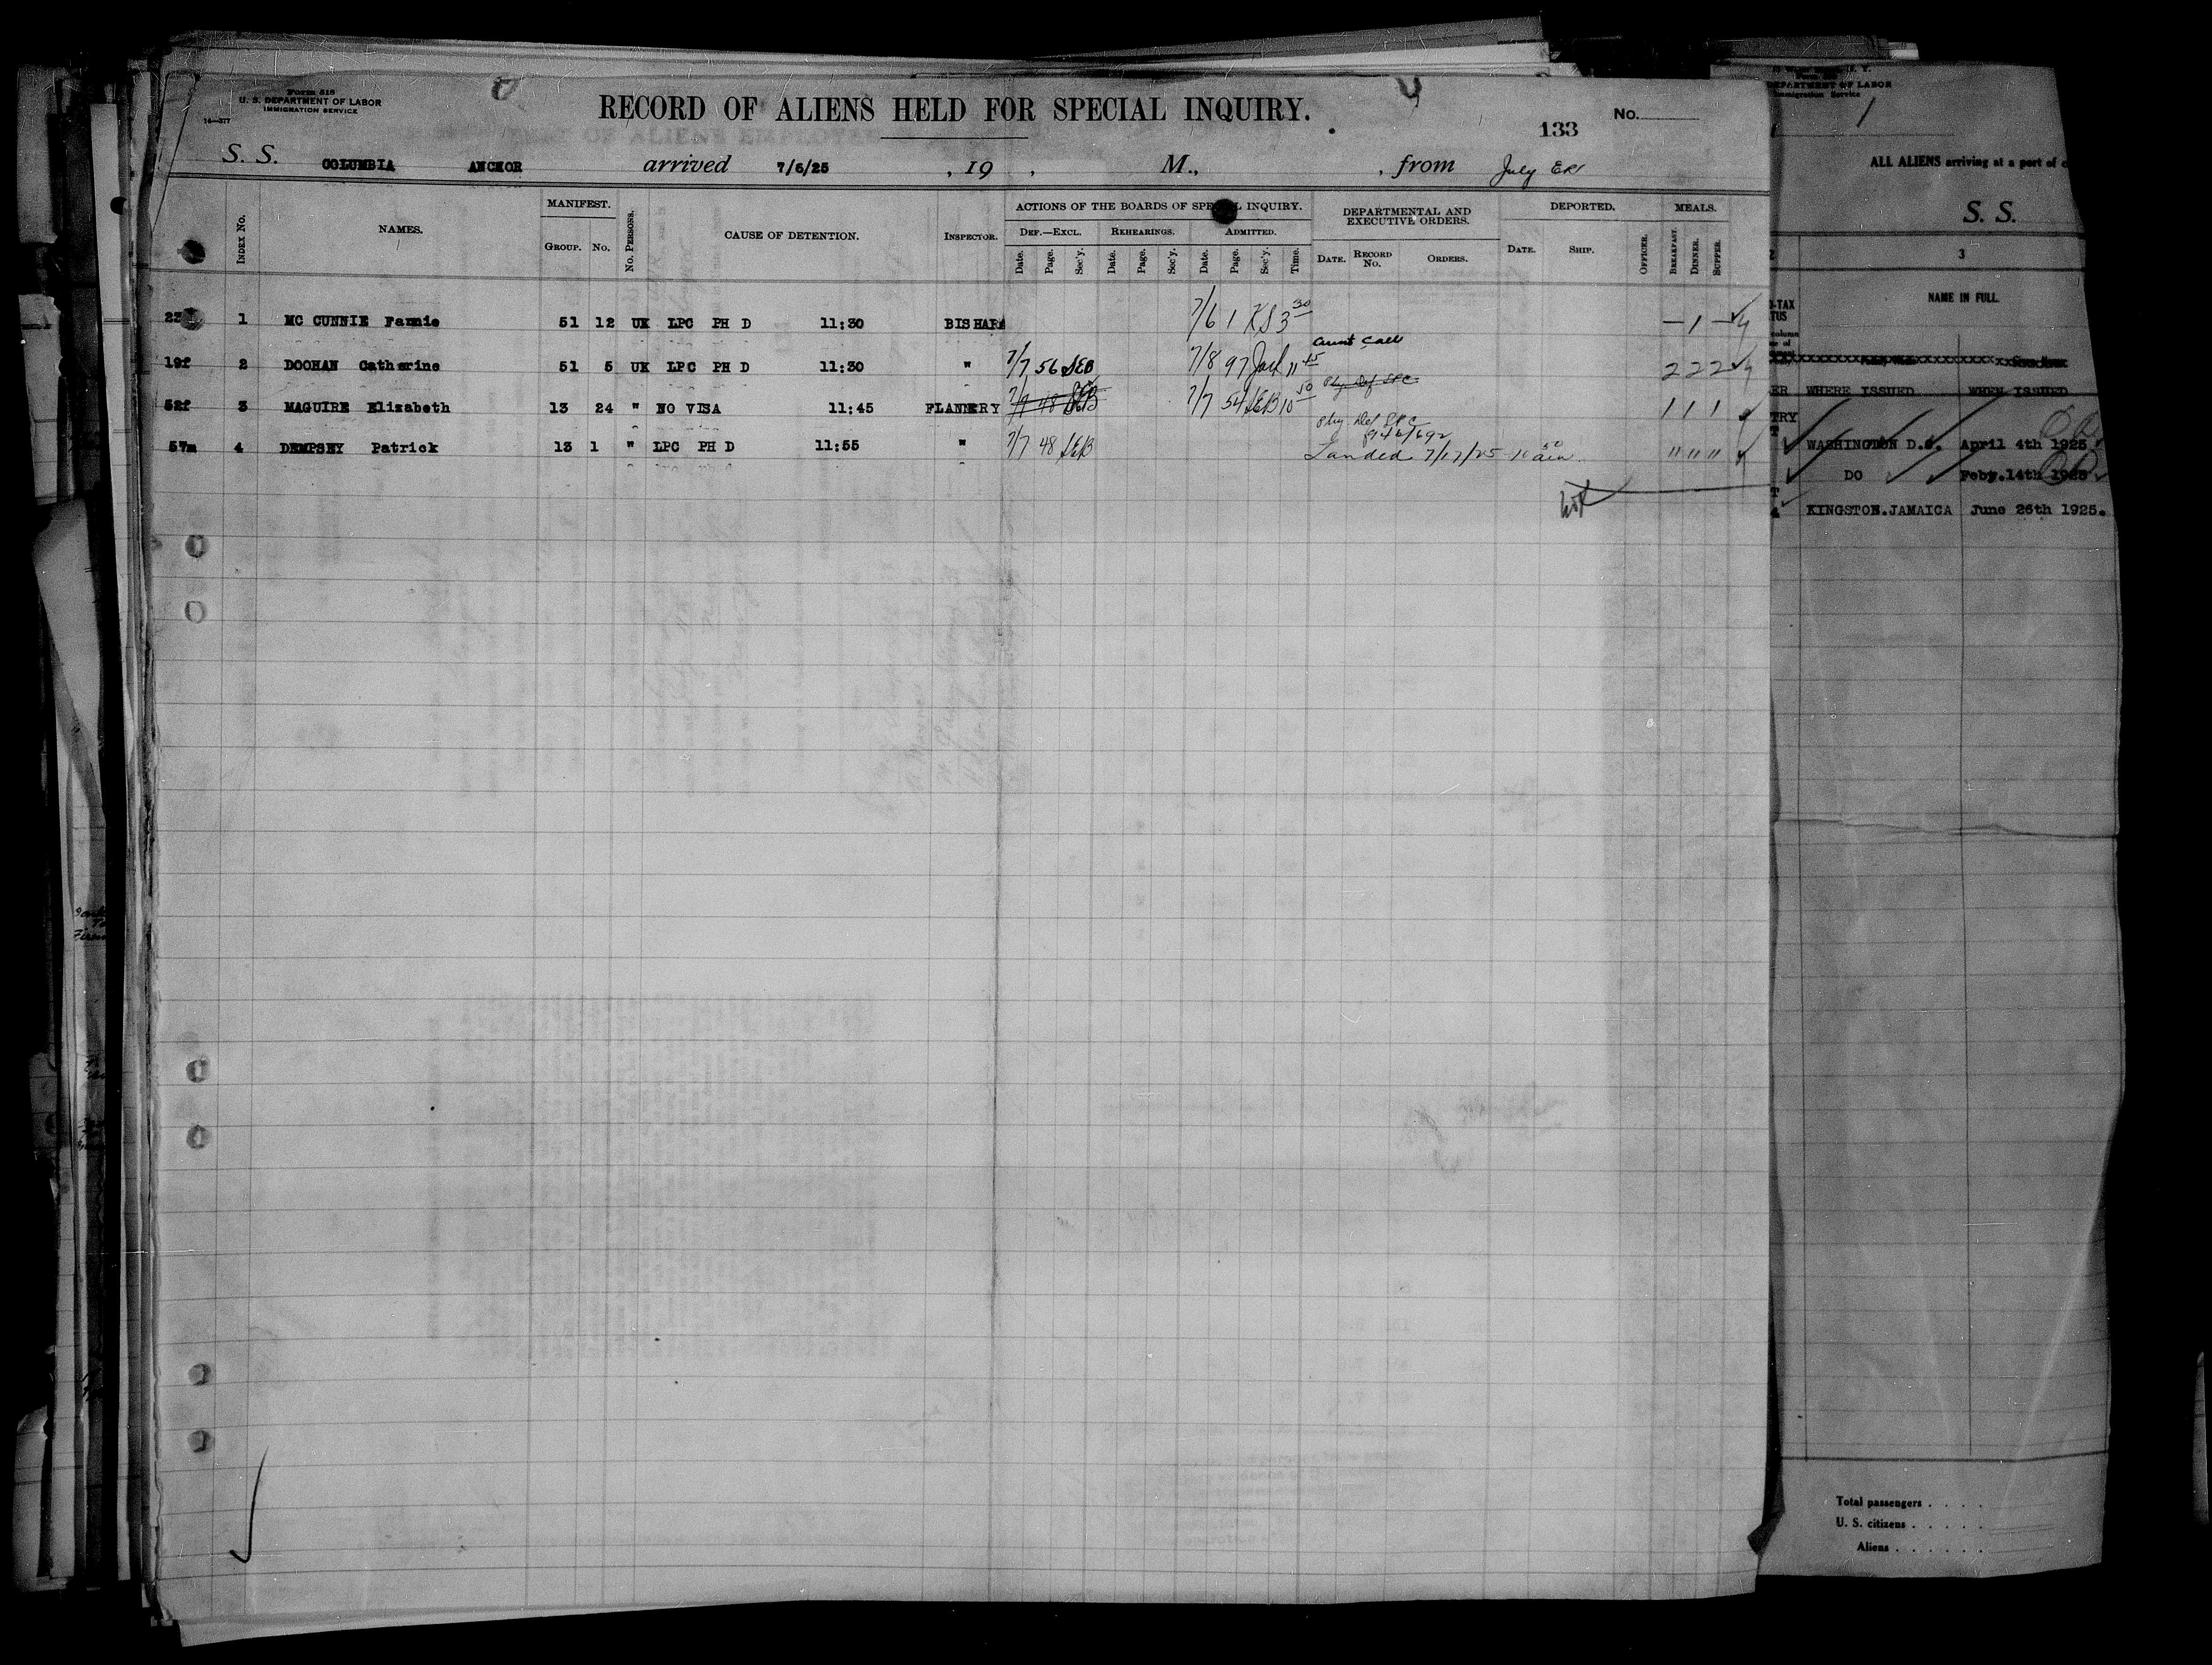 Form 518
U. S. DEPARTMENT OF LABOR
IMMIGRATION SERVICE
14—377
RECORD OF ALIENS HELD FOR SPECIAL INQUIRY.
133
No.
S. S. COLUMBIA ANCHOR arrived 7/6/25 , 19 , M., , from July
INDEX No.
NAMES.
MANIFEST.
GROUP. No.
No. PERSONS.
CAUSE OF DETENTION.
INSPECTOR.
ACTIONS OF THE BOARDS OF SPECIAL INQUIRY.
DEF.—EXCL. REHEARINGS. ADMITTED.
Date. Page. Sec'y. Date. Page. Sec'y. Date. Page. Sec'y. Time.
DEPARTMENTAL AND
EXECUTIVE ORDERS.
DATE. RECORD No. ORDERS.
DEPORTED.
DATE. SHIP. OFFICER.
MEALS.
BREAKFAST. DINNER. SUPPER.
1 MC CUNNIE Fannie 51 12 UK LPC PH D 11:30 BISHARA 7/6 1 KS 3 30 — 1 —
Aunt Call
19f 2 DOOHAN Catherine 51 5 UK LPC PH D 11:30 " 7/7 56 SEB 7/8 97 11 45 2 2 2
52f 3 MAGUIRE Elizabeth 13 24 " NO VISA 11:45 FLANNERY 7/7 48 SEB 7/7 54 SEB 10 50 1 1 1
57m 4 DEMPSEY Patrick 13 1 " LPC PH D 11:55 " 7/7 48 SEB Landed 7/17/25 10 50 am " " "
DEPARTMENT OF LABOR
Immigration Service
1
ALL ALIENS arriving at a port of
S. S.
2 3
NAME IN FULL.
WHERE ISSUED WHEN ISSUED
WASHINGTON D.C. April 4th 1925
DO Feby.14th 1925
KINGSTON.JAMAICA June 26th 1925.
Total passengers . . . .
U. S. citizens . . . . .
Aliens . . . . . .